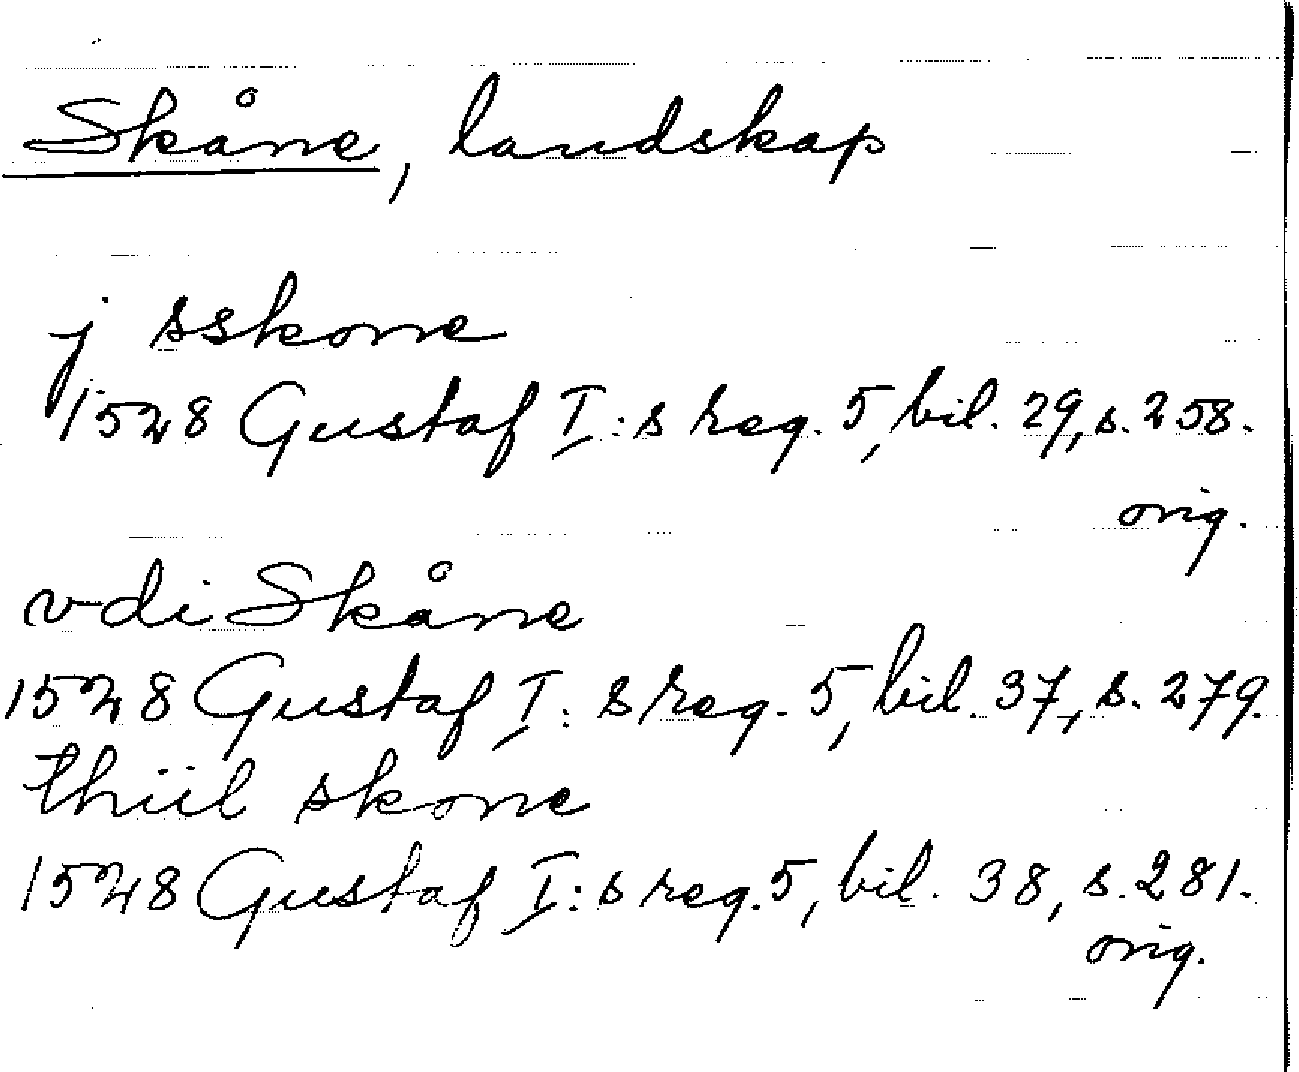 Skåne, landskap
j sskone
1528 Gustaf I:s reg. 5, bil. 29, s. 258.
orig.
vdi Skåne
1528 Gustaf I:s reg. 5, bil. 37, s. 279.
thiil skone
1528 Gustaf I:s reg. 5, bil. 38, s. 281.
orig.